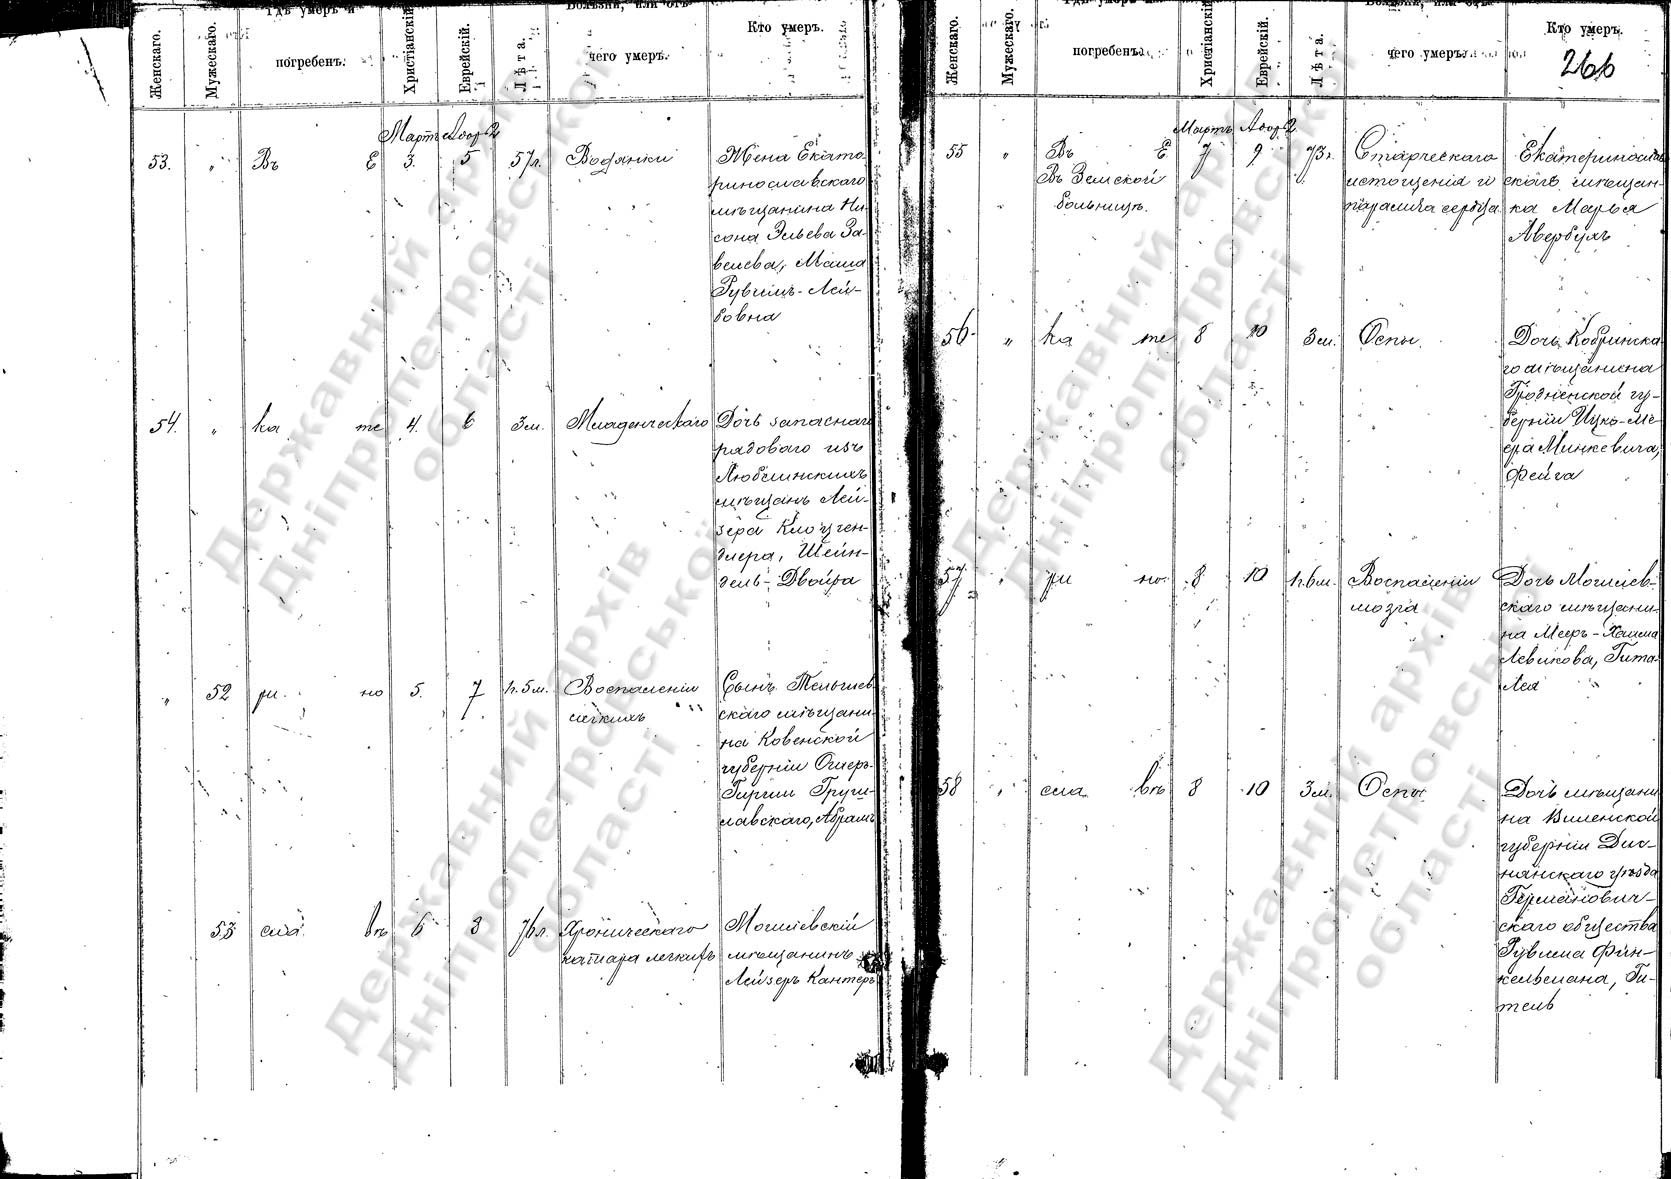 Женскаго.
Мужескаго.
Гдѣ умеръ и
погребенъ.
Христіанскій
Еврейскій.
Лѣта.
Болѣзнь, или отъ
чего умеръ.
Кто умеръ.
Мартъ Адор 2
53. " Въ Е 3. 5 57л. Водянки
Жена Екате-
ринославскаго
мѣщанина Ни-
сона Эльева За-
велева, Маша
Рувимъ-Лей-
бовна
54. " ка те 4. 6 3м. Младенческаго
Дочь запаснаго
рядоваго изъ
Люблинскихъ
мѣщанъ Лей-
зера
Шейн-
дель-Двойра
" 52 ри но 5. 7 1г. 5м. Воспаленія
легкихъ
Сынъ Тельшев-
скаго мѣщани-
на Ковенской
губерніи Ошеръ-
Гирши Груш-
лавскаго, Абрамъ
53 сла вѣ 6 8 76л. Хроническаго
катара легкихъ
Могилевскій
мѣщанинъ
Лейзеръ Канторъ
Женскаго.
Мужескаго.
погребенъ.
Христіанскій
Еврейскій.
Лѣта.
чего умеръ.
Кто умеръ.
266
Мартъ Адор 2
55 " Въ Е 7 9 73л. Старческаго
Въ Земской истощенія и
больницѣ. паралича сердца
Екатеринослав-
скаго мѣщан-
ка Марья
Авербухъ
56 " ка те 8 10 3м. Оспы.
Дочь Кобринска-
го мѣщанина
Гродненской гу-
берніи Ицко-Ме-
ера Минкевича,
Фейга
57 " ри но 8 10 1г. 6м. Воспаленія
мозга
Дочь Могилев-
скаго мѣщани-
на Мееръ-Хаима
Левикова, Гита-
Лея
58 " сла вѣ 8 10 3м. Оспы
Дочь мѣщани-
на Виленской
губерніи Дис-
нянскаго уѣзда
Германович-
скаго общества
Рувима Фин-
кельмана, Ги-
тель
Державний архів
Дніпропетровської
області
Державний архів
Дніпропетровської
області
Державний архів
Дніпропетровської
області
Державний архів
Дніпропетровської
області